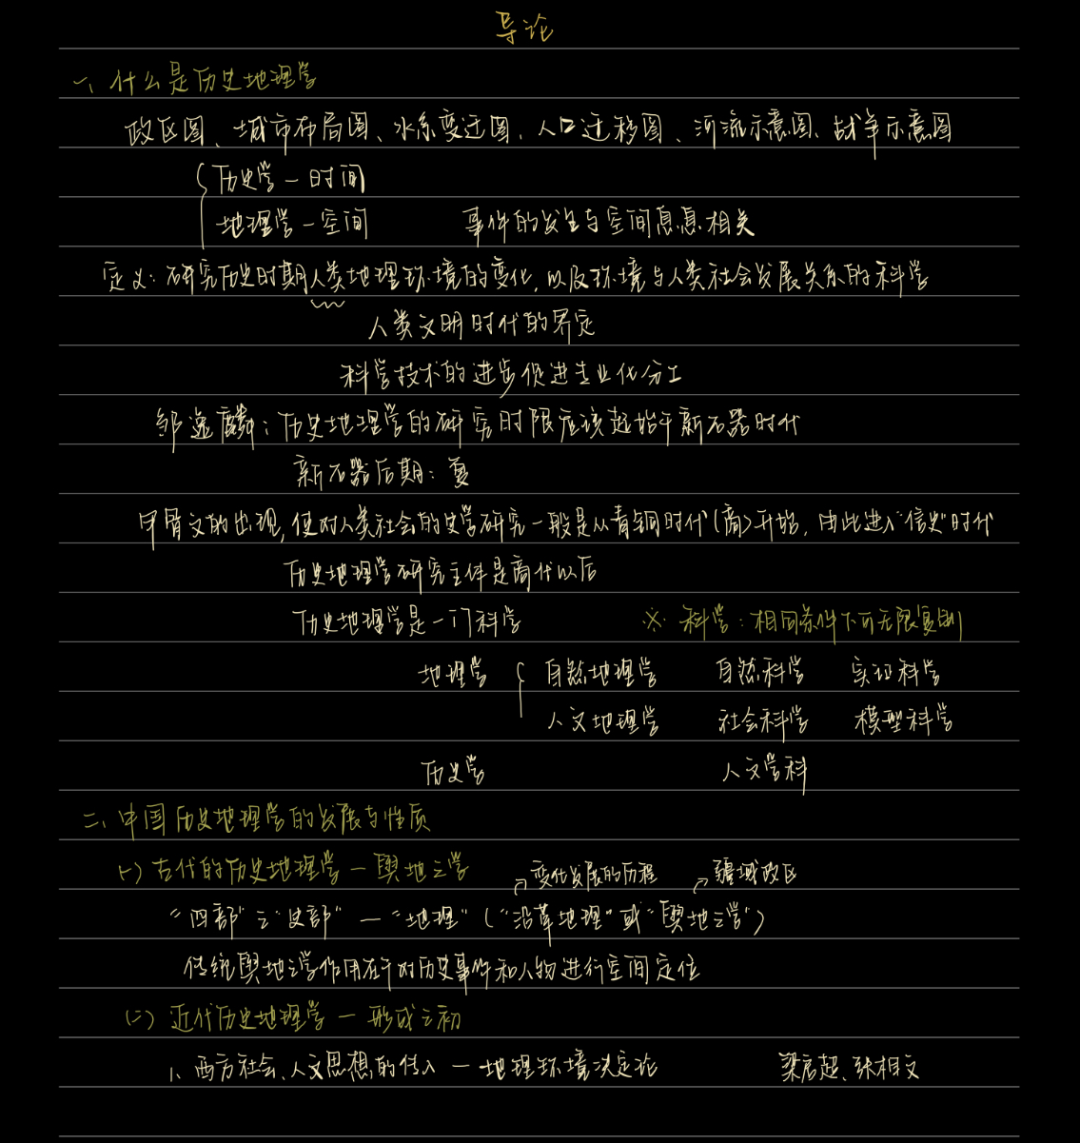 导论
一、什么是历史地理学
政区图、城市布局图、水系变迁图、人口迁移图、河流示意图、战争示意图
历史学－时间
地理学－空间 事件的发生与空间息息相关
定义：研究历史时期人类地理环境的变化，以及环境与人类社会发展关系的科学
人类文明时代的界定
科学技术的进步促进专业化分工
邹逸麟：历史地理学的研究时限应该起始于新石器时代
新石器后期：夏
甲骨文的出现，使对人类社会的史学研究一般是从青铜时代（商）开始，由此进入“信史”时代
历史地理学研究主体是商代以后
历史地理学是一门科学 ※ 科学：相同条件下可无限复制
地理学 自然地理学 自然科学 实证科学
人文地理学 社会科学 模型科学
历史学 人文学科
二、中国历史地理学的发展与性质
（一）古代的历史地理学－舆地之学 →变化发展的历程 →疆域政区
“四部”之“史部”－“地理”（“沿革地理”或“舆地之学”）
传统舆地之学作用在于对历史事件和人物进行空间定位
（二）近代历史地理学－形成之初
1、西方社会、人文思想的传入－地理环境决定论 梁启超、张相文